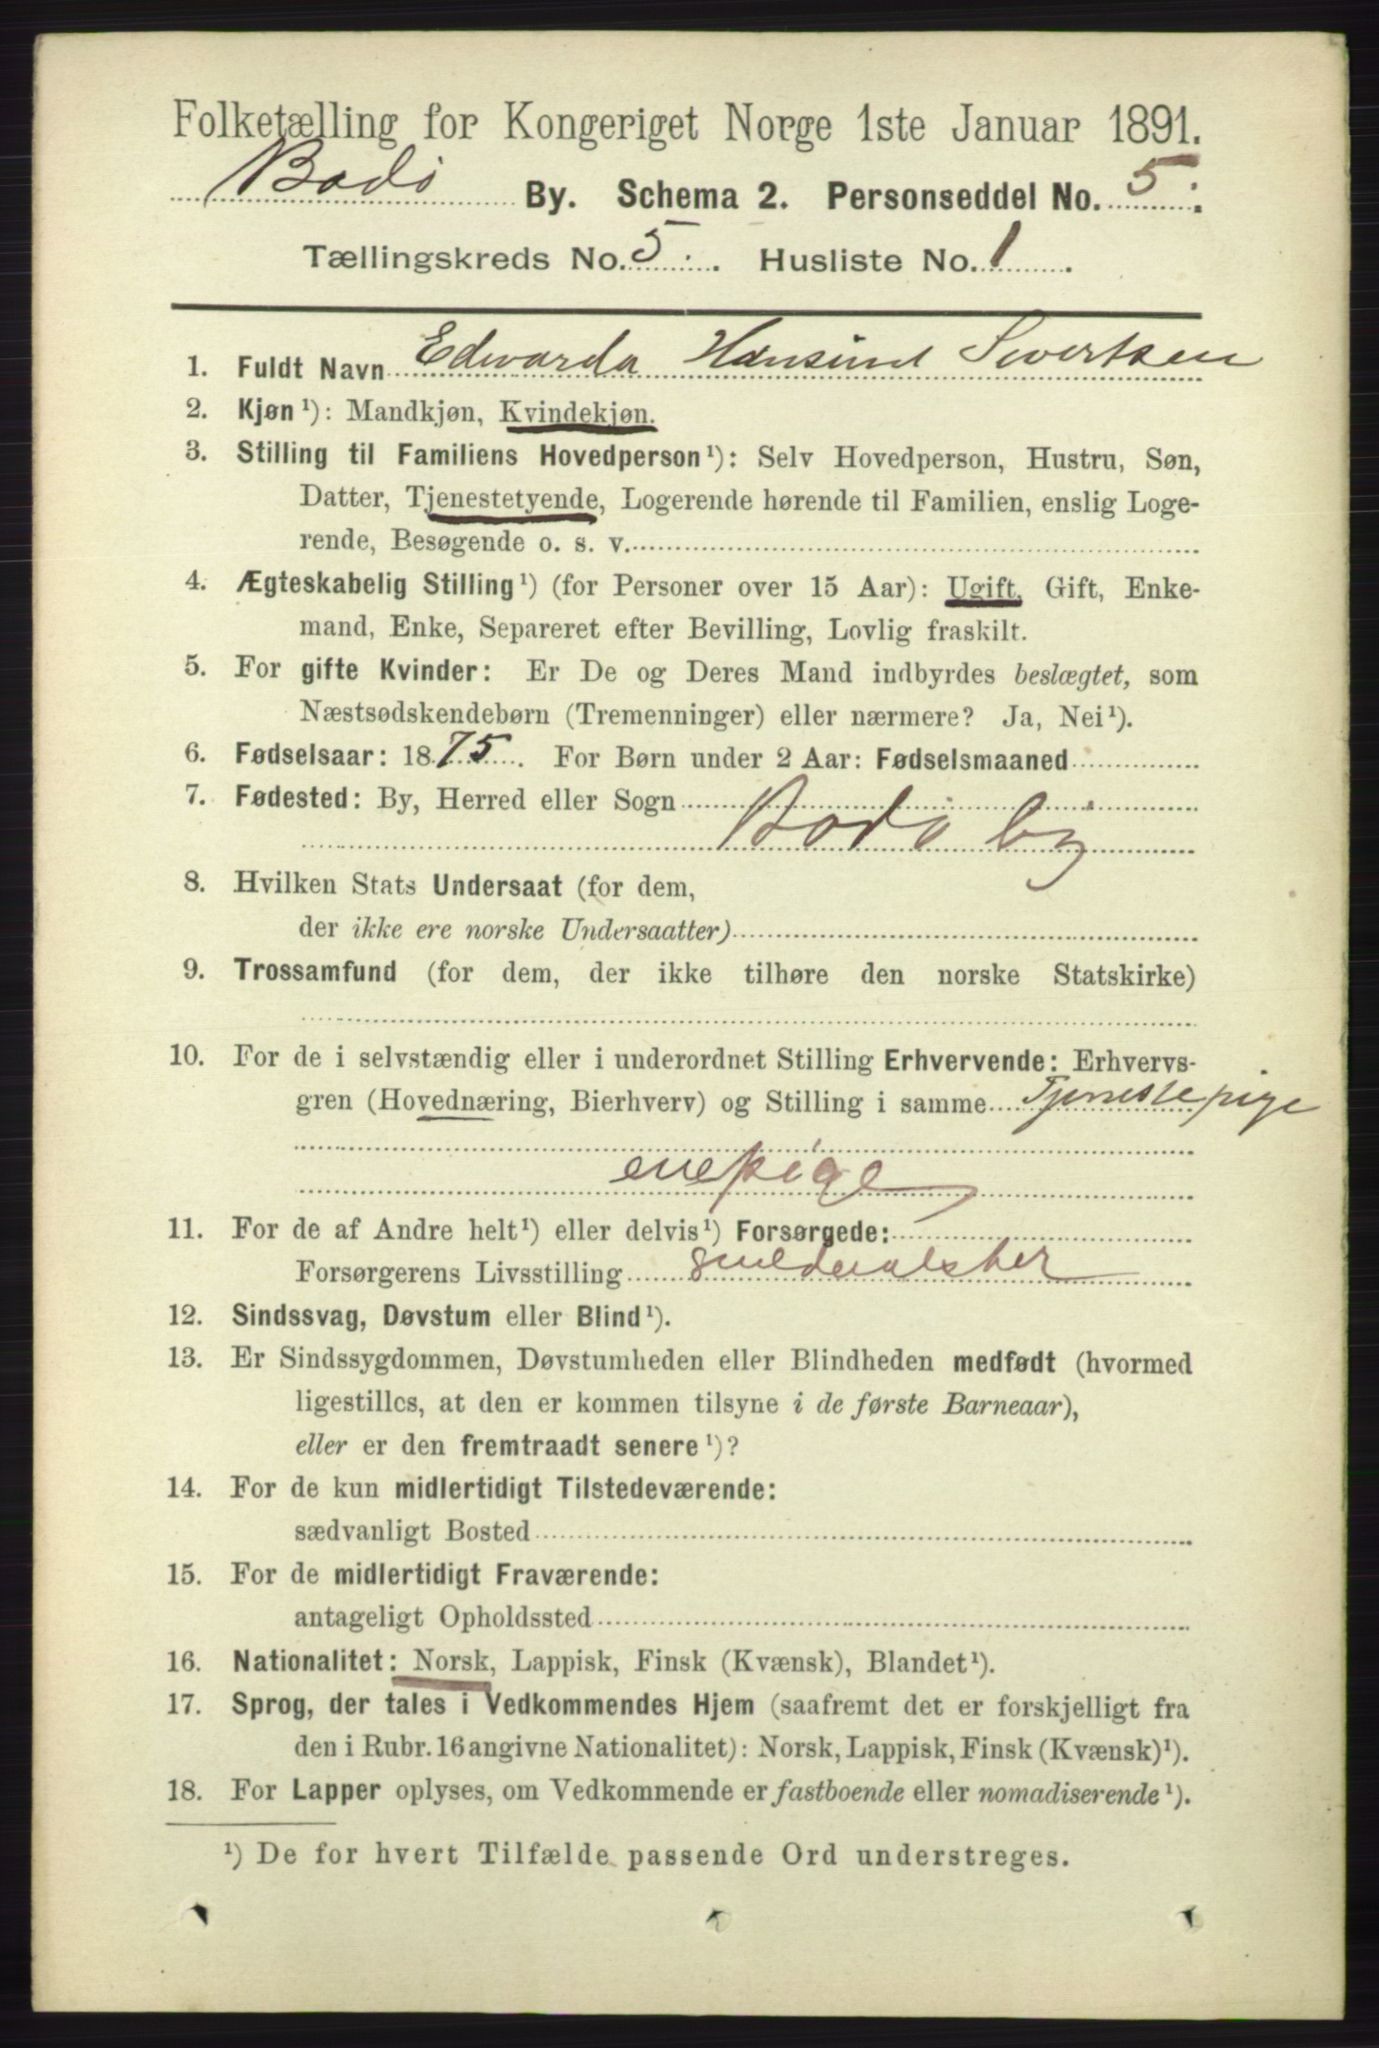 Folketælling for Kongeriget Norge 1ste Januar 1891.
Bodø By. Schema 2. Personseddel No. 5.
Tællingskreds No. 5. Husliste No. 1.
1. Fuldt Navn Edvarda Hansine Sivertsen
2. Kjøn ¹): Mandkjøn, Kvindekjøn.
3. Stilling til Familiens Hovedperson ¹): Selv Hovedperson, Hustru, Søn,
Datter, Tjenestetyende, Logerende hørende til Familien, enslig Loge-
rende, Besøgende o. s. v.
4. Ægteskabelig Stilling ¹) (for Personer over 15 Aar): Ugift, Gift, Enke-
mand, Enke, Separeret efter Bevilling, Lovlig fraskilt.
5. For gifte Kvinder: Er De og Deres Mand indbyrdes beslægtet, som
Næstsødskendebørn (Tremenninger) eller nærmere? Ja, Nei ¹).
6. Fødselsaar: 1875. For Børn under 2 Aar: Fødselsmaaned
7. Fødested: By, Herred eller Sogn
Bodø by
8. Hvilken Stats Undersaat (for dem,
der ikke ere norske Undersaatter)
9. Trossamfund (for dem, der ikke tilhøre den norske Statskirke)
10. For de i selvstændig eller i underordnet Stilling Erhvervende: Erhvervs-
gren (Hovednæring, Bierhverv) og Stilling i samme Tjenestepige
enepige
11. For de af Andre helt ¹) eller delvis ¹) Forsørgede:
Forsørgerens Livsstilling
12. Sindssvag, Døvstum eller Blind ¹).
13. Er Sindssygdommen, Døvstumheden eller Blindheden medfødt (hvormed
ligestilles, at den er kommen tilsyne i de første Barneaar),
eller er den fremtraadt senere ¹)?
14. For de kun midlertidigt Tilstedeværende:
sædvanligt Bosted
15. For de midlertidigt Fraværende:
antageligt Opholdssted
16. Nationalitet: Norsk, Lappisk, Finsk (Kvænsk), Blandet ¹).
17. Sprog, der tales i Vedkommendes Hjem (saafremt det er forskjelligt fra
den i Rubr. 16 angivne Nationalitet): Norsk, Lappisk, Finsk (Kvænsk) ¹).
18. For Lapper oplyses, om Vedkommende er fastboende eller nomadiserende ¹).
¹) De for hvert Tilfælde passende Ord understreges.